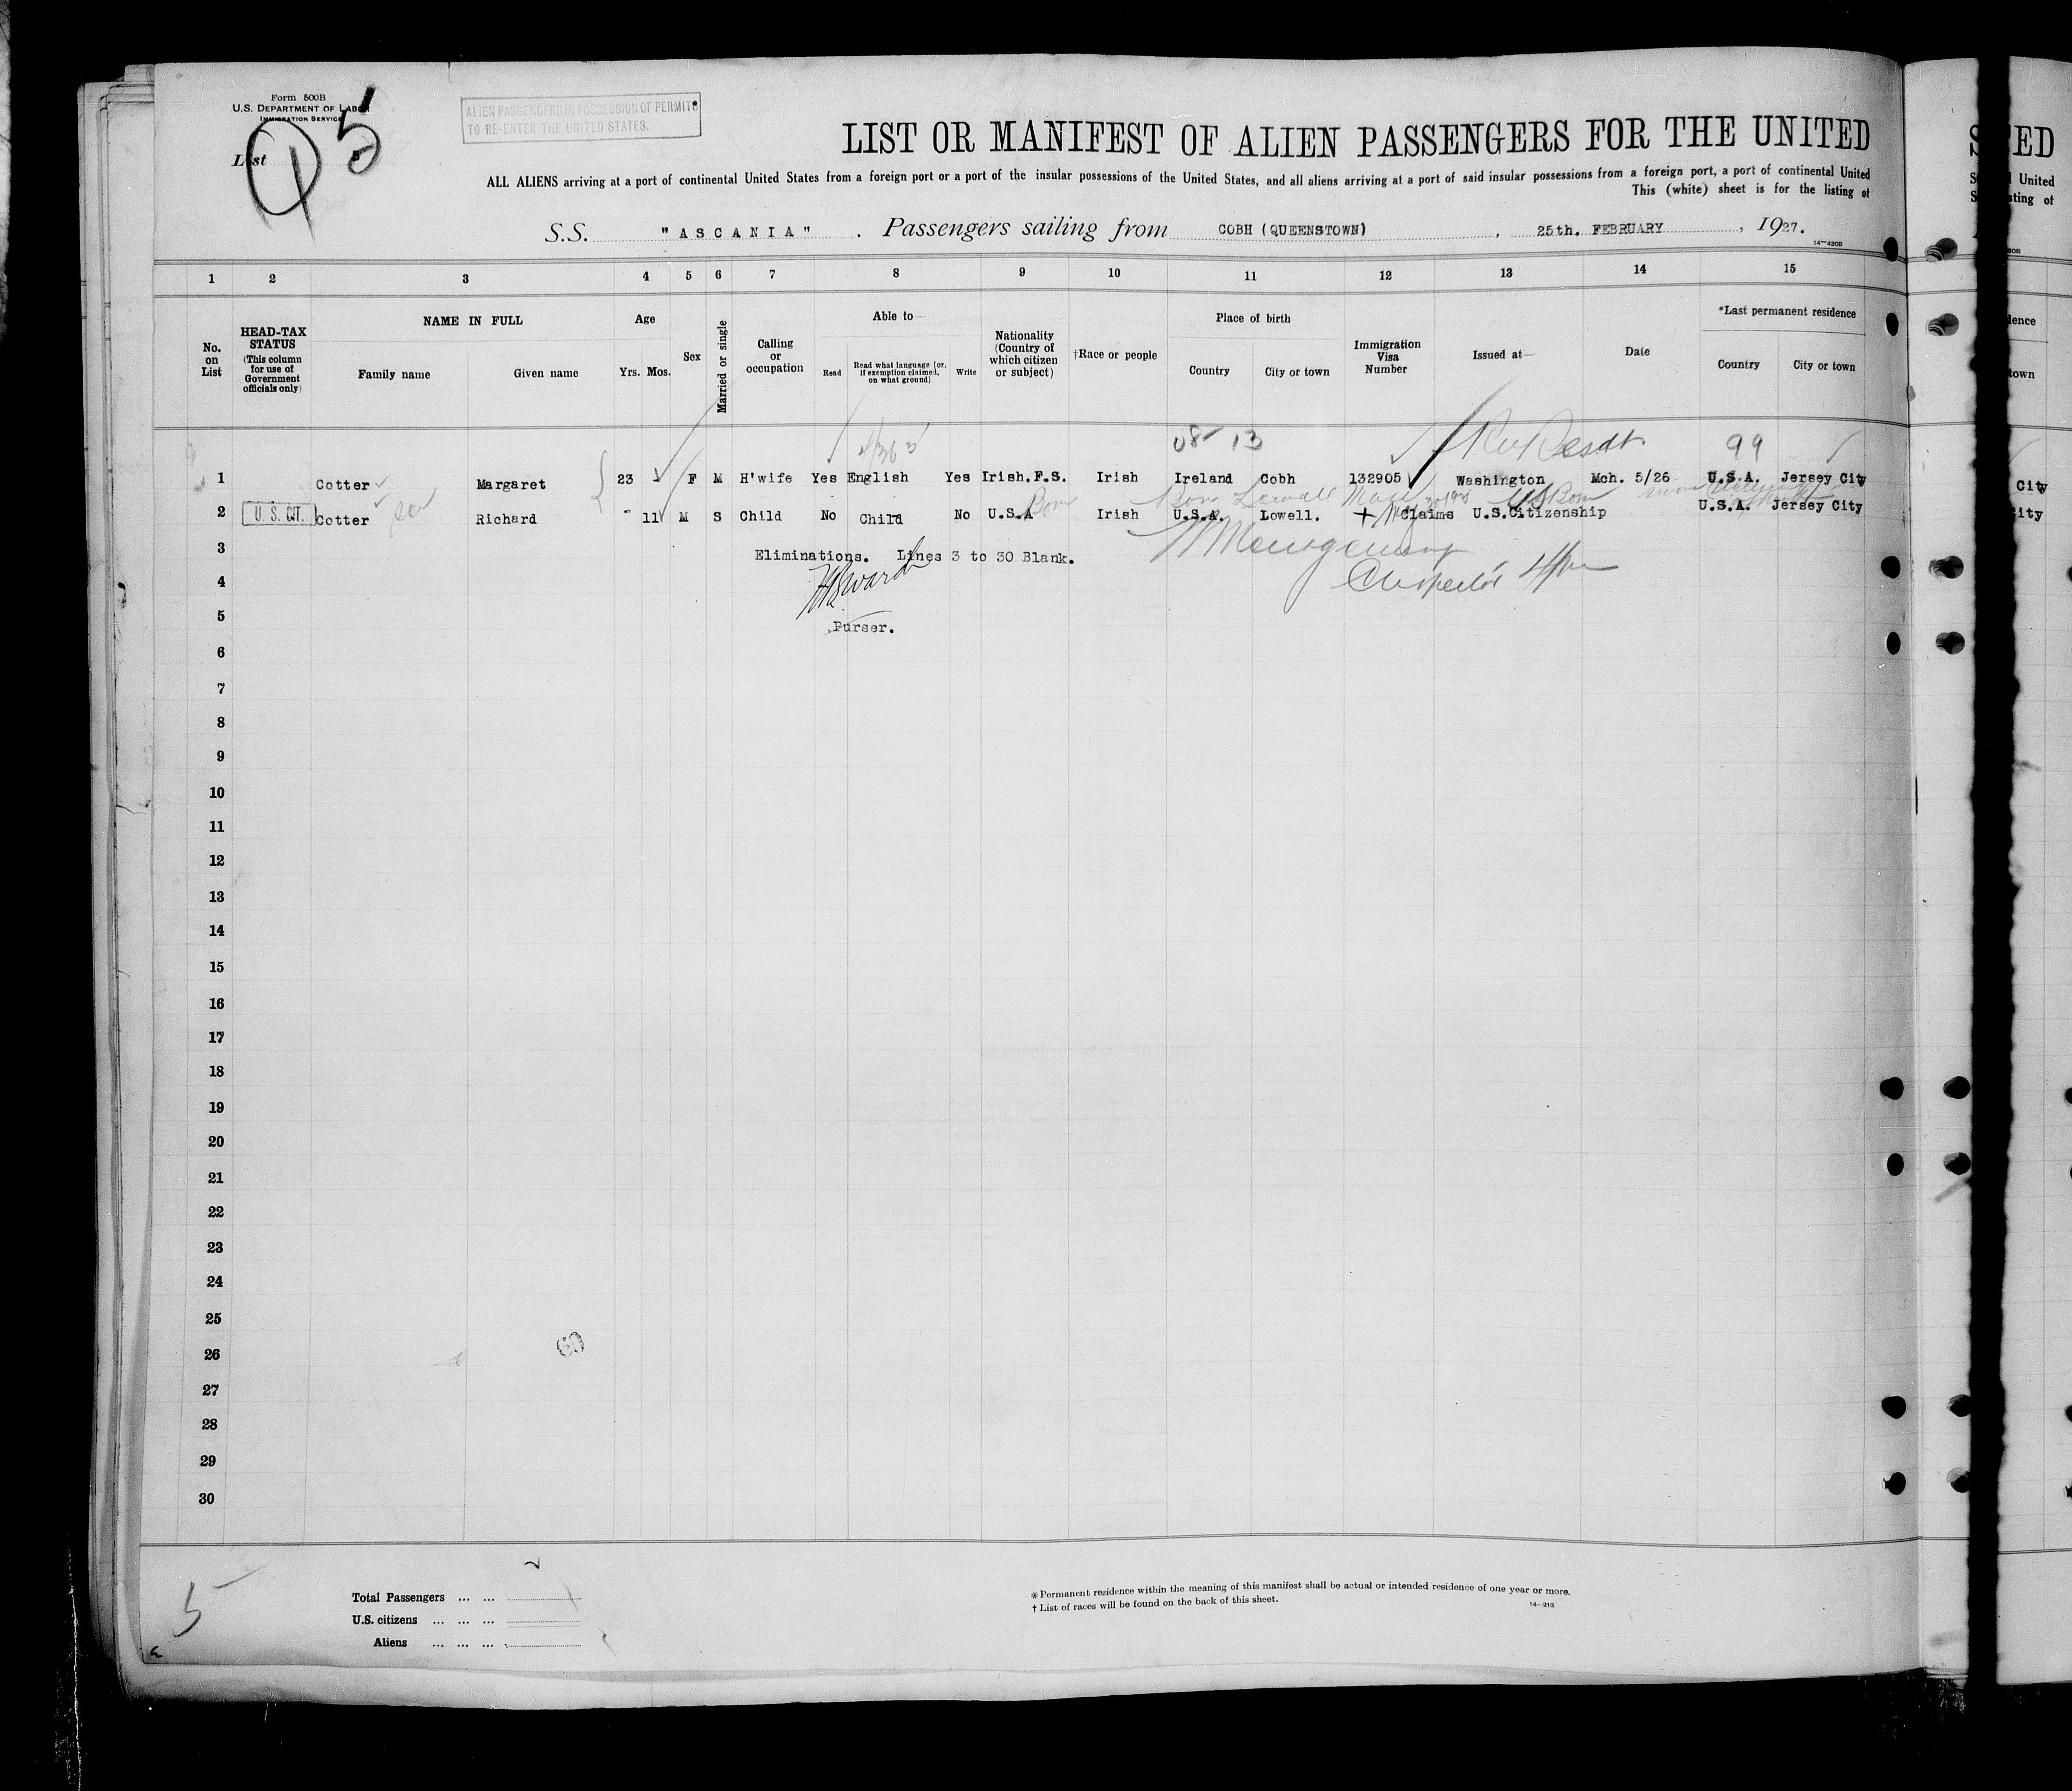 Form 500B
U.S. DEPARTMENT OF LABOR
IMMIGRATION SERVICE
List 5
ALIEN PASSENGERS IN POSSESSION OF PERMITS
TO RE-ENTER THE UNITED STATES.
LIST OR MANIFEST OF ALIEN PASSENGERS FOR THE UNITED
ALL ALIENS arriving at a port of continental United States from a foreign port or a port of the insular possessions of the United States, and all aliens arriving at a port of said insular possessions from a foreign port, a port of continental United
This (white) sheet is for the listing of
S.S. "ASCANIA". Passengers sailing from COBH (QUEENSTOWN), 25th. FEBRUARY, 1927.
14—430B
1 2 3 4 5 6 7 8 9 10 11 12 13 14 15
No. on List
HEAD-TAX STATUS (This column for use of Government officials only)
NAME IN FULL
Family name Given name
Age
Yrs. Mos.
Sex
Married or single
Calling or occupation
Able to—
Read Read what language [or, if exemption claimed, on what ground] Write
Nationality (Country of which citizen or subject)
†Race or people
Place of birth
Country City or town
Immigration Visa Number
Issued at—
Date
*Last permanent residence
Country City or town
08 13 99
1 Cotter Margaret 23 F M H'wife Yes English Yes Irish.F.S. Irish Ireland Cobh 132905 Washington Mch. 5/26 U.S.A. Jersey City
Born Lowell Mass
2 U. S. CIT. Cotter Richard 11 M S Child No Child No U.S.A Born Irish U.S.A. Lowell. Claims U.S.Citizenship U.S.A. Jersey City
3 Eliminations. Lines 3 to 30 Blank.
4
5 Purser.
6
7
8
9
10
11
12
13
14
15
16
17
18
19
20
21
22
23
24
25
26
27
28
29
30
5
Total Passengers ... ...
U.S. citizens ... ... ...
Aliens ... ... ...
* Permanent residence within the meaning of this manifest shall be actual or intended residence of one year or more.
† List of races will be found on the back of this sheet.
14—213